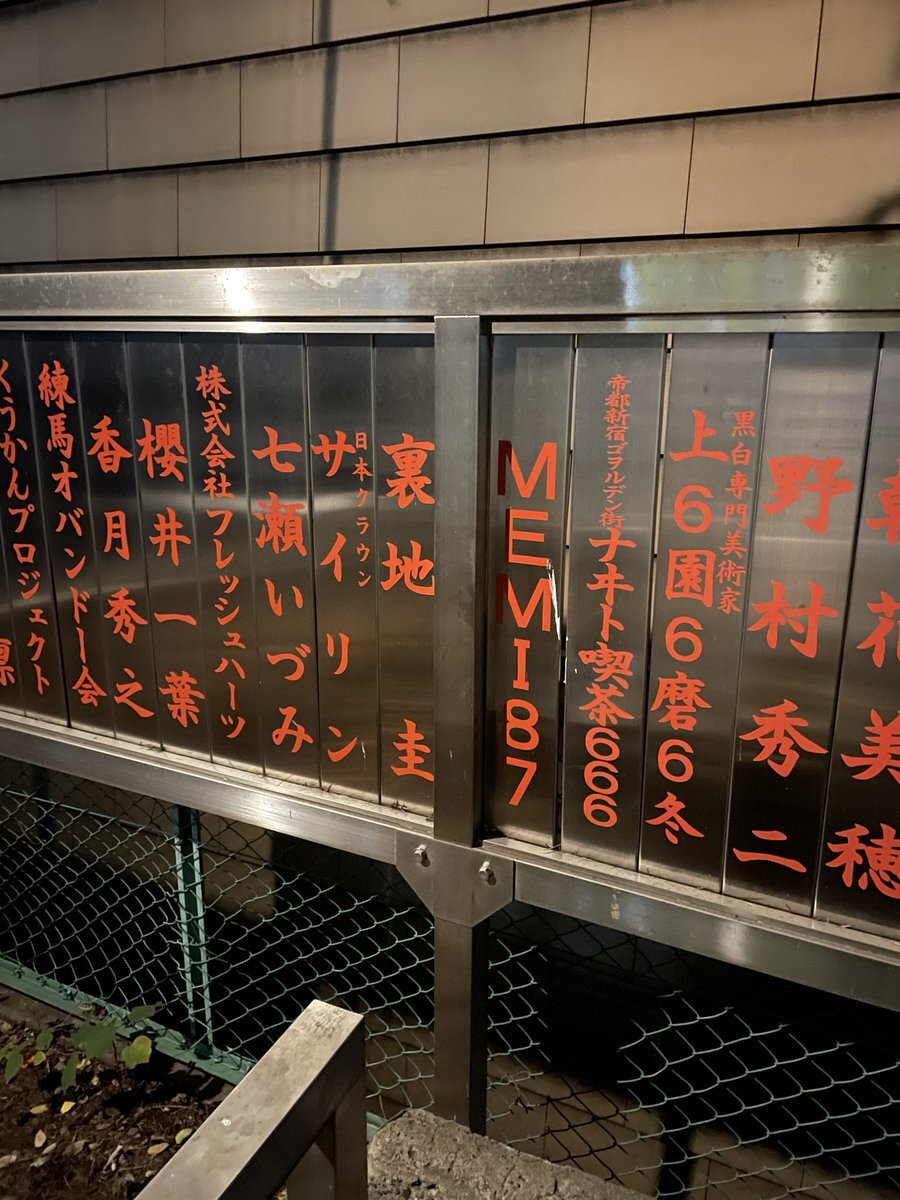 美穂
野村秀二
黒白専門美術家
上6園6磨6冬
帝都新宿ゴヲルデン街
ナヰト喫茶666
MEMI87
裏地圭
日本クラウン
サイリン
七瀬いづみ
株式会社フレッシュハーツ
櫻井一葉
香月秀之
練馬オバンドー会
くうかんプロジェクト